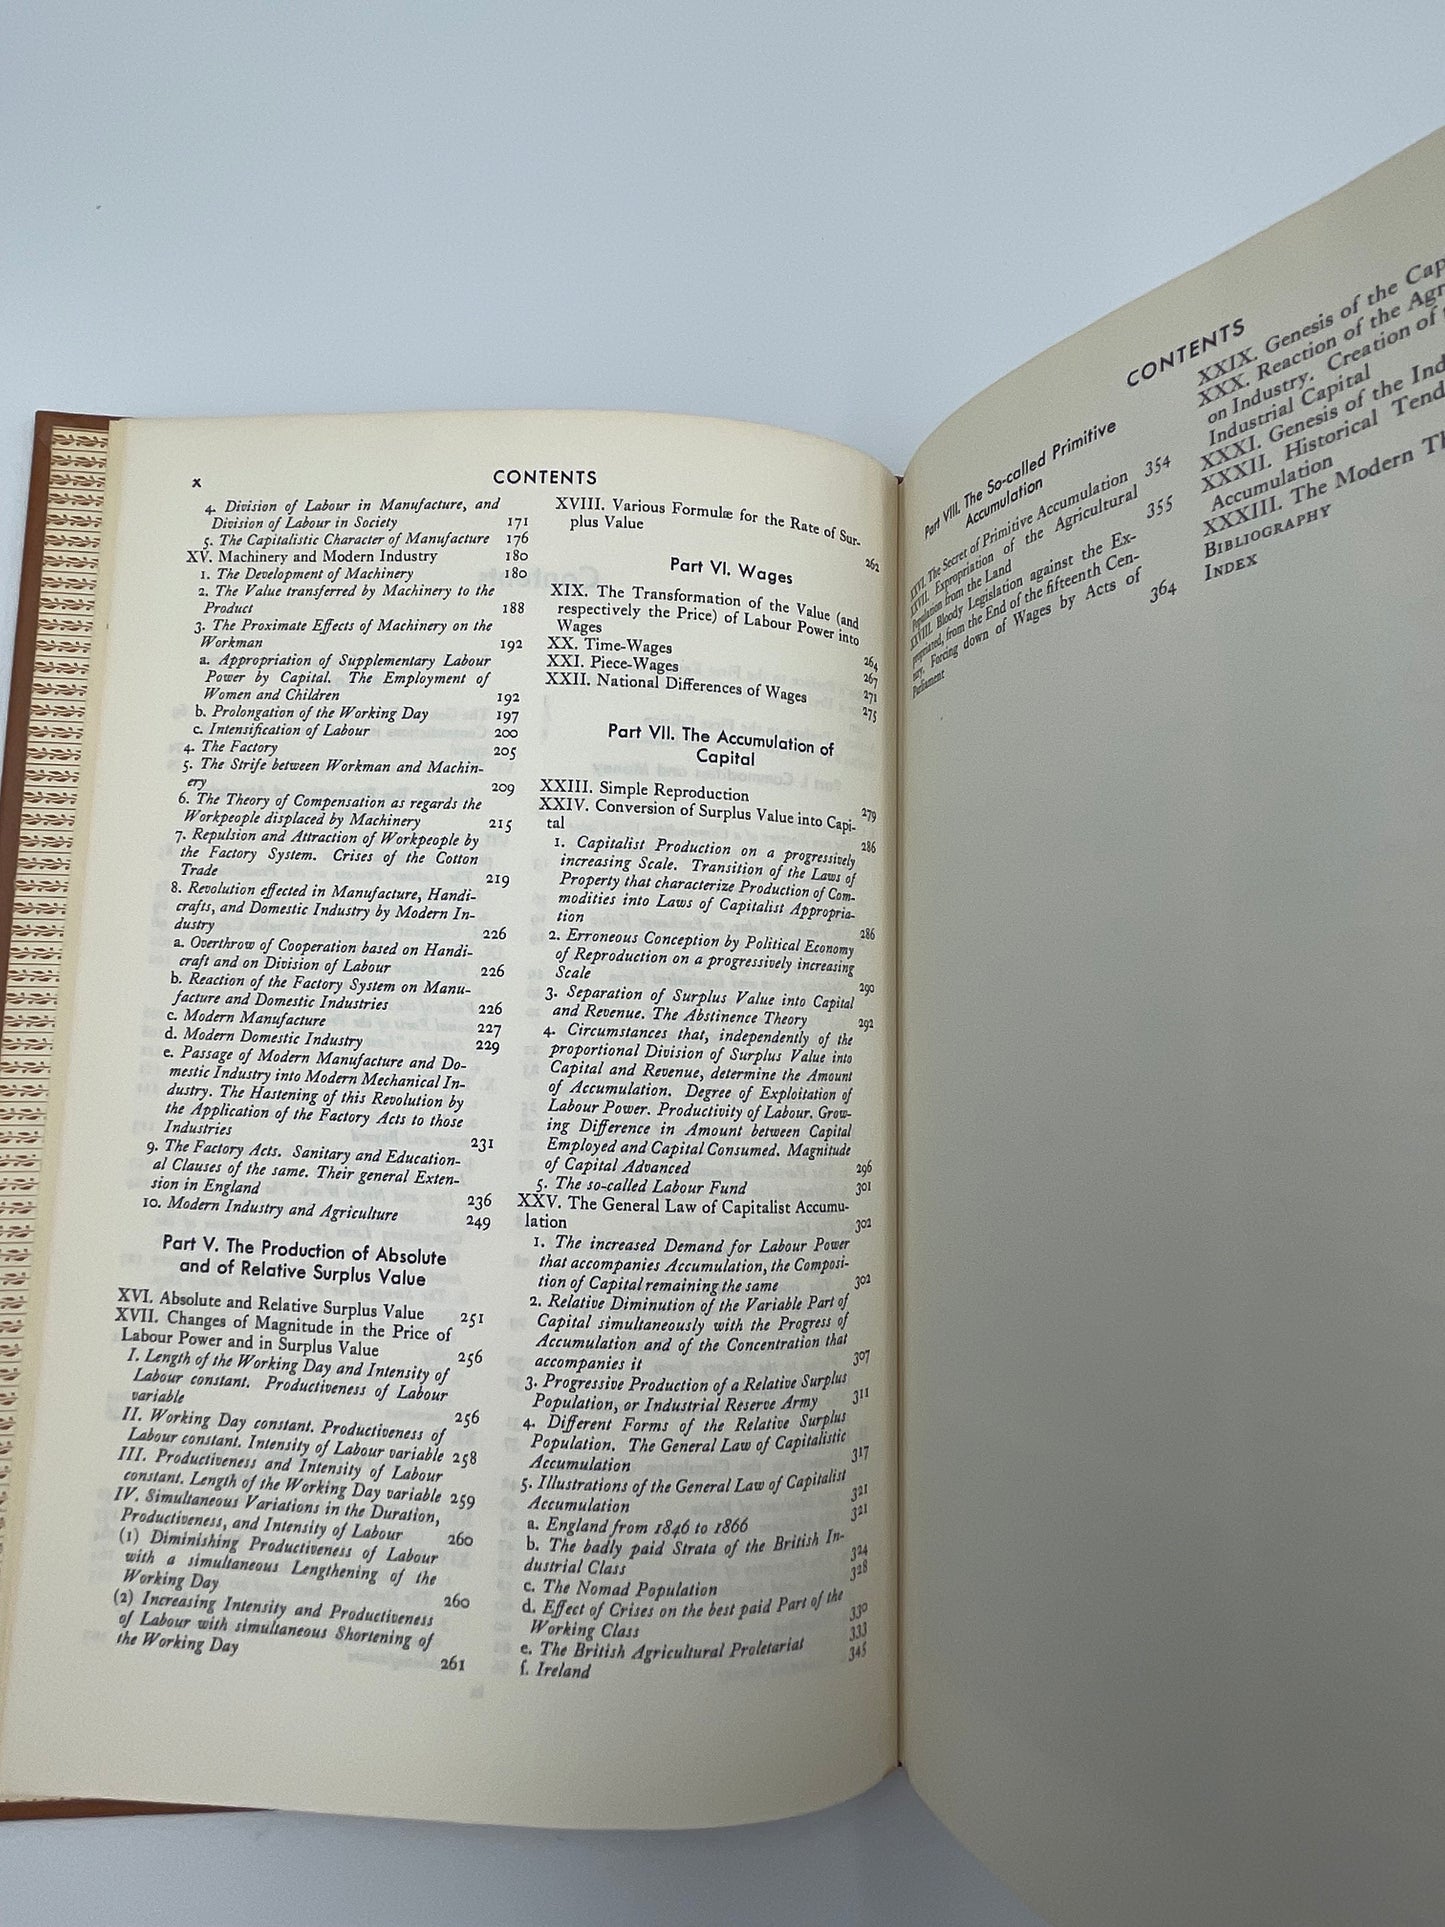 x
CONTENTS
4. Division of Labour in Manufacture, and
Division of Labour in Society 171
5. The Capitalistic Character of Manufacture 176
XV. Machinery and Modern Industry 180
1. The Development of Machinery 180
2. The Value transferred by Machinery to the
Product 188
3. The Proximate Effects of Machinery on the
Workman 192
a. Appropriation of Supplementary Labour
Power by Capital. The Employment of
Women and Children 192
b. Prolongation of the Working Day 197
c. Intensification of Labour 200
4. The Factory 205
5. The Strife between Workman and Machin-
ery 209
6. The Theory of Compensation as regards the
Workpeople displaced by Machinery 215
7. Repulsion and Attraction of Workpeople by
the Factory System. Crises of the Cotton
Trade 219
8. Revolution effected in Manufacture, Handi-
crafts, and Domestic Industry by Modern In-
dustry 226
a. Overthrow of Cooperation based on Handi-
craft and on Division of Labour 226
b. Reaction of the Factory System on Manu-
facture and Domestic Industries 226
c. Modern Manufacture 227
d. Modern Domestic Industry 229
e. Passage of Modern Manufacture and Do-
mestic Industry into Modern Mechanical In-
dustry. The Hastening of this Revolution by
the Application of the Factory Acts to those
Industries 231
9. The Factory Acts. Sanitary and Education-
al Clauses of the same. Their general Exten-
sion in England 236
10. Modern Industry and Agriculture 249
Part V. The Production of Absolute
and of Relative Surplus Value
XVI. Absolute and Relative Surplus Value 251
XVII. Changes of Magnitude in the Price of
Labour Power and in Surplus Value 256
I. Length of the Working Day and Intensity of
Labour constant. Productiveness of Labour
variable 256
II. Working Day constant. Productiveness of
Labour constant. Intensity of Labour variable 258
III. Productiveness and Intensity of Labour
constant. Length of the Working Day variable 259
IV. Simultaneous Variations in the Duration,
Productiveness, and Intensity of Labour 260
(1) Diminishing Productiveness of Labour
with a simultaneous Lengthening of the
Working Day 260
(2) Increasing Intensity and Productiveness
of Labour with simultaneous Shortening of
the Working Day 261
XVIII. Various Formulæ for the Rate of Sur-
plus Value 262
Part VI. Wages
XIX. The Transformation of the Value (and
respectively the Price) of Labour Power into
Wages 264
XX. Time-Wages 267
XXI. Piece-Wages 271
XXII. National Differences of Wages 275
Part VII. The Accumulation of
Capital
XXIII. Simple Reproduction 279
XXIV. Conversion of Surplus Value into Capi-
tal 286
1. Capitalist Production on a progressively
increasing Scale. Transition of the Laws of
Property that characterize Production of Com-
modities into Laws of Capitalist Appropria-
tion 286
2. Erroneous Conception by Political Economy
of Reproduction on a progressively increasing
Scale 290
3. Separation of Surplus Value into Capital
and Revenue. The Abstinence Theory 292
4. Circumstances that, independently of the
proportional Division of Surplus Value into
Capital and Revenue, determine the Amount
of Accumulation. Degree of Exploitation of
Labour Power. Productivity of Labour. Grow-
ing Difference in Amount between Capital
Employed and Capital Consumed. Magnitude
of Capital Advanced 296
5. The so-called Labour Fund 301
XXV. The General Law of Capitalist Accumu-
lation 302
1. The increased Demand for Labour Power
that accompanies Accumulation, the Composi-
tion of Capital remaining the same 302
2. Relative Diminution of the Variable Part of
Capital simultaneously with the Progress of
Accumulation and of the Concentration that
accompanies it 307
3. Progressive Production of a Relative Surplus
Population, or Industrial Reserve Army 311
4. Different Forms of the Relative Surplus
Population. The General Law of Capitalistic
Accumulation 317
5. Illustrations of the General Law of Capitalist
Accumulation 321
a. England from 1846 to 1866 321
b. The badly paid Strata of the British In-
dustrial Class 324
c. The Nomad Population 328
d. Effect of Crises on the best paid Part of the
Working Class 330
e. The British Agricultural Proletariat 333
f. Ireland 345
CONTENTS
Part VIII. The So-called Primitive
Accumulation
XXVI. The Secret of Primitive Accumulation 354
XXVII. Expropriation of the Agricultural
Population from the Land 355
XXVIII. Bloody Legislation against the Ex-
propriated, from the End of the fifteenth Cen-
tury. Forcing down of Wages by Acts of
Parliament 364
XXIX. Genesis of the Cap
XXX. Reaction of the Agr
on Industry. Creation of
Industrial Capital
XXXI. Genesis of the Ind
XXXII. Historical Tend
Accumulation
XXXIII. The Modern Th
BIBLIOGRAPHY
INDEX